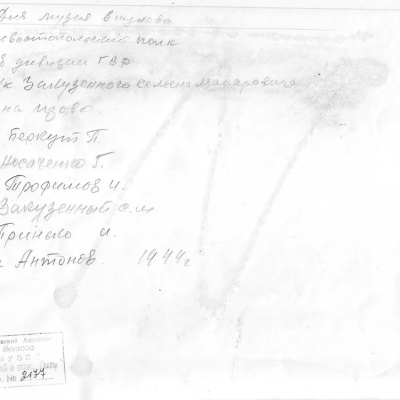 Для музея Внуково
евастопольский полк
дивизии ГВФ
Закузенного Семена Макаровича
на Идово.
Беркут П.
Носаченко Г.
Трофимов И.
Закузенный С. М
Принало И.
Антонов. 1944г
ВНУКОВО
МУЗЕ
№ 2177